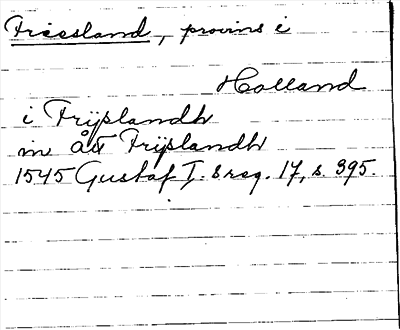 Friesland, provins i
Holland
i Frijslandh
in åt Frijslandh
1545 Gustaf I:s reg. 17, s. 395.